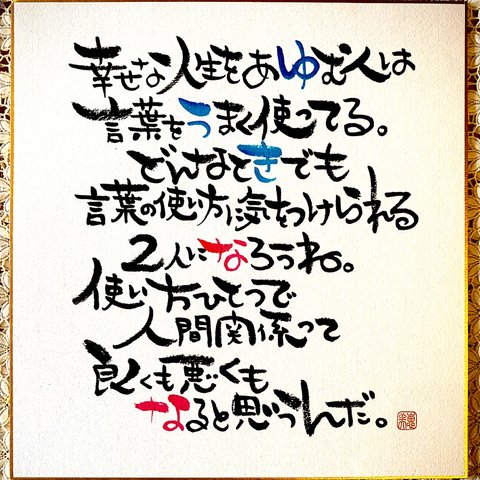 幸せな人生をあゆむ人は
言葉をうまく使ってる。
どんなときでも
言葉の使い方に気をつけられる
2人になろうね。
使い方ひとつで
人間関係って
良くも悪くも
なると思うんだ。